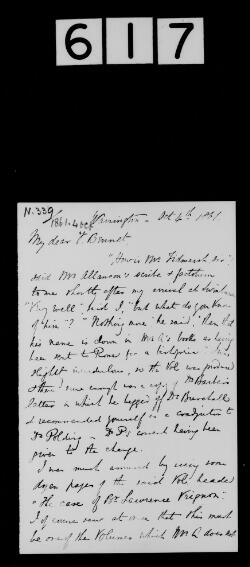 617
N. 339
1861. 4 Oct
Oct 4th 1861
My dear F. Bennet,
"How is Mr
said Mr scribe &
to me shortly after my arrival at
"Very well", said I, "but what do you know
of him"? "Nothing more" he said, "than that
his name is down in Mr G's books as having
been sent to Rome for a"
slightest so the Vol. was produced
& there sure enough was a copy of Dr
letters in which he begged of Dr
& recommended yourself as a coadjutor to
Dr Polding – Dr P's consent having been
given to the change.
I was much amused by seeing some
dozen pages of the said Vol. headed
"The case of Mr Lawrence
I of course saw at once that this must
be one of the Volumes which Mr G. does not